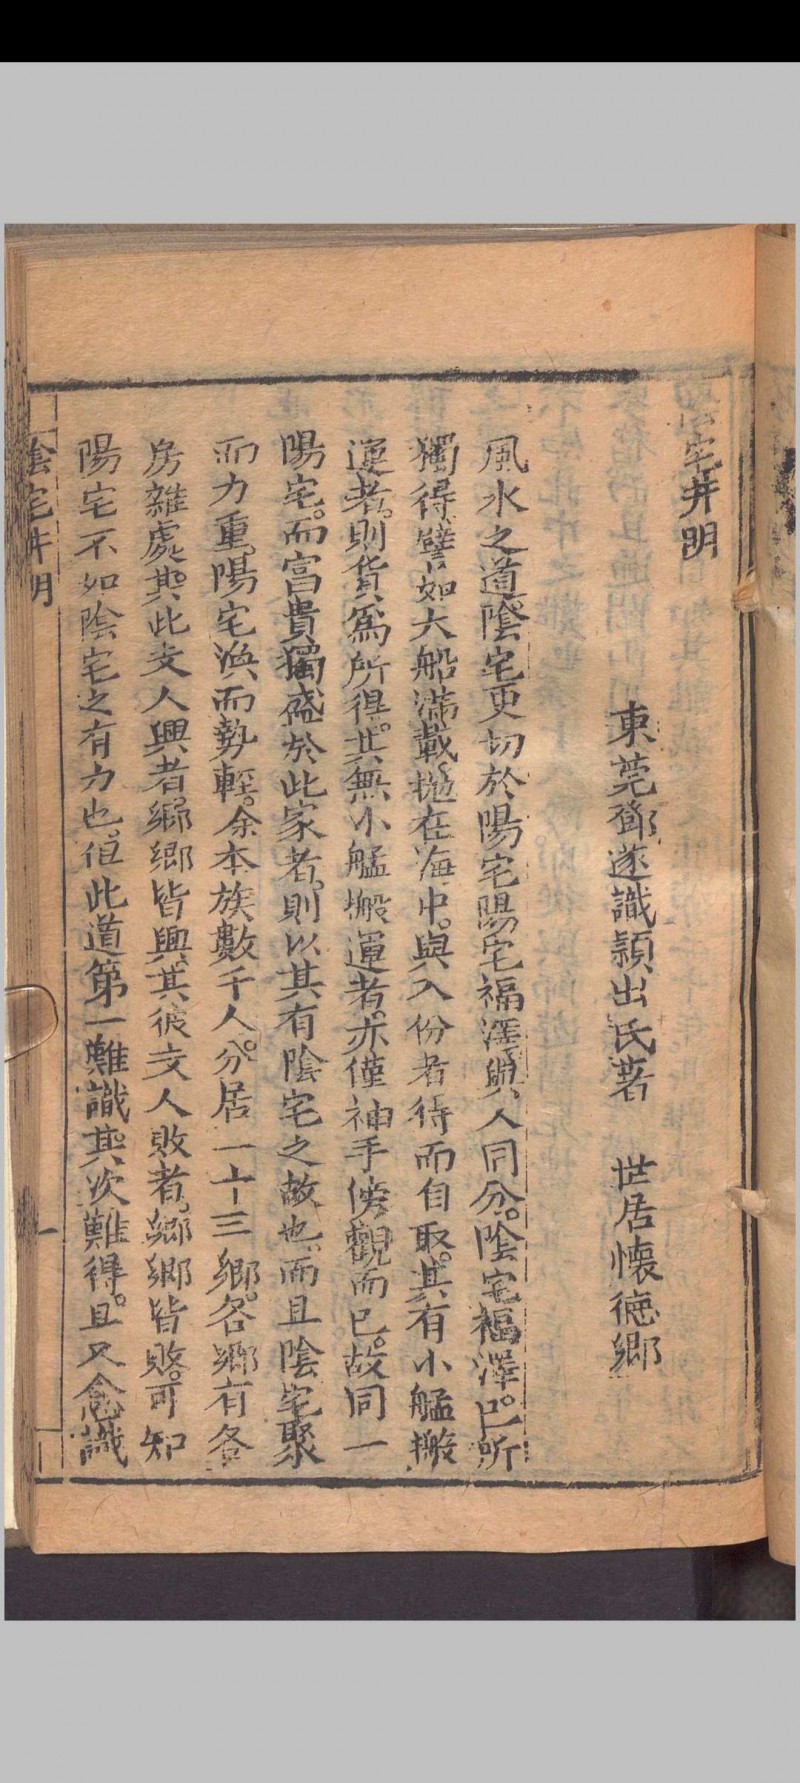 陰宅井明
東莞鄧遂識穎出氏著　世居懷德鄉
風水之道。陰宅更切於陽宅。陽宅福澤。與人同分。陰宅福澤。已所
獨得。譬如大船滿載。拋在海中。與入份者待而自取。其有小艋搬
運者。則貨爲所得。其無小艋搬運者。亦僅袖手傍觀而已。故同一
陽宅。而富貴獨盛於此家者。則以其有陰宅之故也。而且陰宅聚
而力重。陽宅渙而勢輕。余本族數千人。分居一十三鄉。各鄉有各
房雜處。其此支人興者。鄉鄉皆興。其彼支人敗者。鄉鄉皆敗。可知
陽宅不如陰宅之有力也。但此道第一難識。其次難得。且又念識
陰宅井明
一